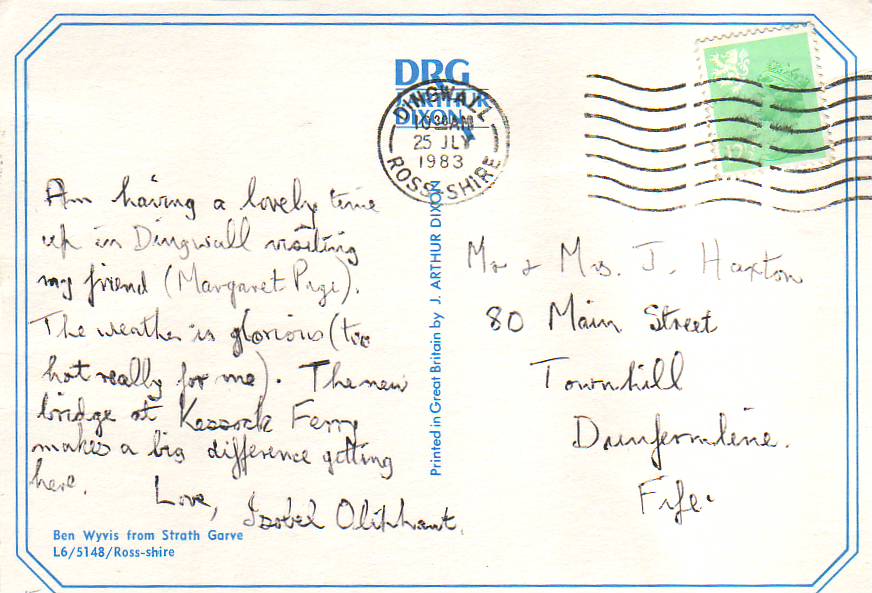 DRG
J. ARTHUR
DIXON
DINGWALL
10 30 AM
25 JLY
1983
ROSS-SHIRE
Am having a lovely time
up in Dingwall visiting
my friend (Margaret Pigi).
The weather is glorious (too
hot really for me). The new
bridge at Kessock Ferry
makes a big difference getting
here.
Love,
Isobel Oliphant.
Ben Wyvis from Strath Garve
L6/5148/Ross-shire
Printed in Great Britain by J. ARTHUR DIXON
Mr & Mrs. J. Haxton
80 Main Street
Townhill
Dunfermline.
Fife.